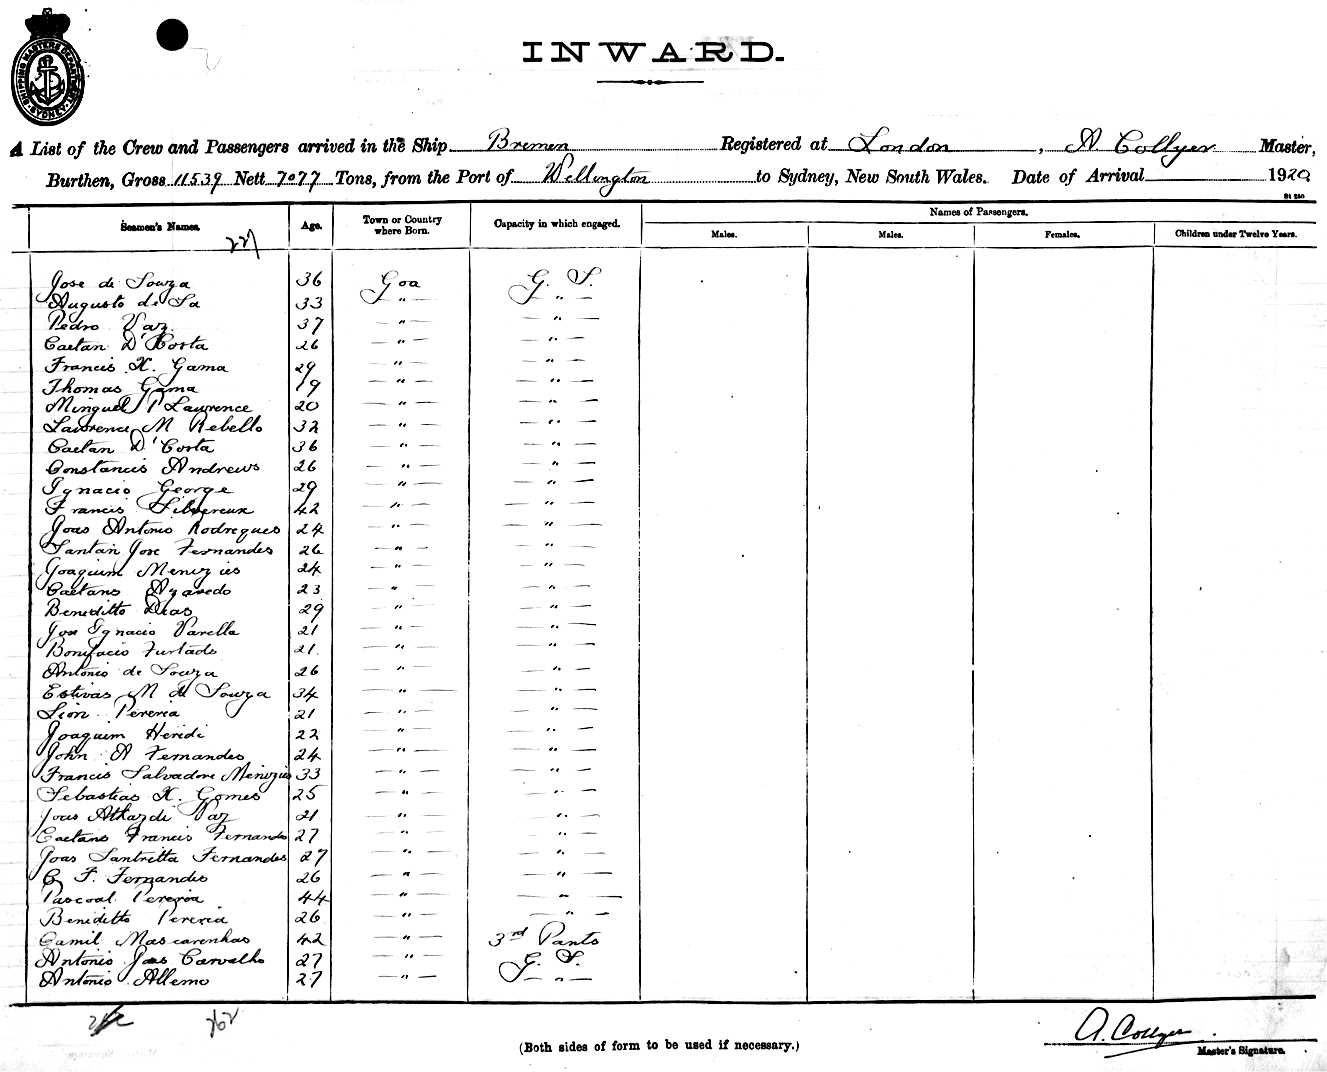 SHIPPING MASTERS DEPARTMENT SYDNEY
INWARD.
A List of the Crew and Passengers arrived in the Ship Bremen Registered at London, A Collyer Master,
Burthen, Gross 11539 Nett 7077 Tons, from the Port of Wellington to Sydney, New South Wales. Date of Arrival 1920
Seamen's Names. Age. Town or Country where Born. Capacity in which engaged. Names of Passengers.
Males. Males. Females. Children under Twelve Years.
227
Jose de Souza 36 Goa G. S.
Augusto de Sa 33 " "
Pedro Vaz 37 " "
Caetan D'Costa 26 " "
Francis X. Gama 29 " "
Thomas Gama 19 " "
Minguel P Lawrence 20 " "
Lawrence M Rebello 32 " "
Caetan D'Costa 36 " "
Constancis Andrews 26 " "
Ignacio George 29 " "
Francis 42 " "
Joas Antonio Rodregues 24 " "
Santan Jose Fernandes 26 " "
Joaquim Menezies 24 " "
Caetano Azavedo 23 " "
Beneditto Dias 29 " "
Jose Ignacio Varella 21 " "
Bonifacio Furtado 21 " "
Antonio de Souza 26 " "
Estivas M de Souza 34 " "
Lion Pereria 21 " "
Joaquim Heredi 22 " "
John A Fernandes 24 " "
Francis Salvadore Menezies 33 " "
Sebastias X. Gomes 25 " "
Joas Vaz 21 " "
Caetano Francis Fernandes 27 " "
Joas Santritta Fernandes 27 " "
C F. Fernandes 26 " "
Pascoal Pereria 44 " "
Beneditto Pereria 26 " "
Camil Mascarenhas 42 " 3rd Pants
Antonio Joas Carvalho 27 " G. S.
Antonio Allemo 27 " "
262
A. Collyer
(Both sides of form to be used if necessary.)
Master's Signature.